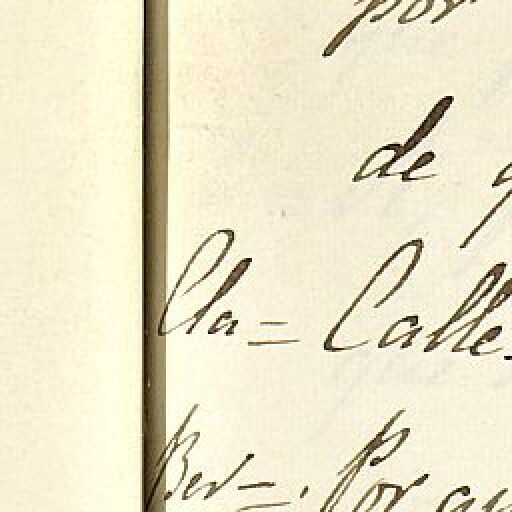 por
de
Cla = Calle
Ber =. Por